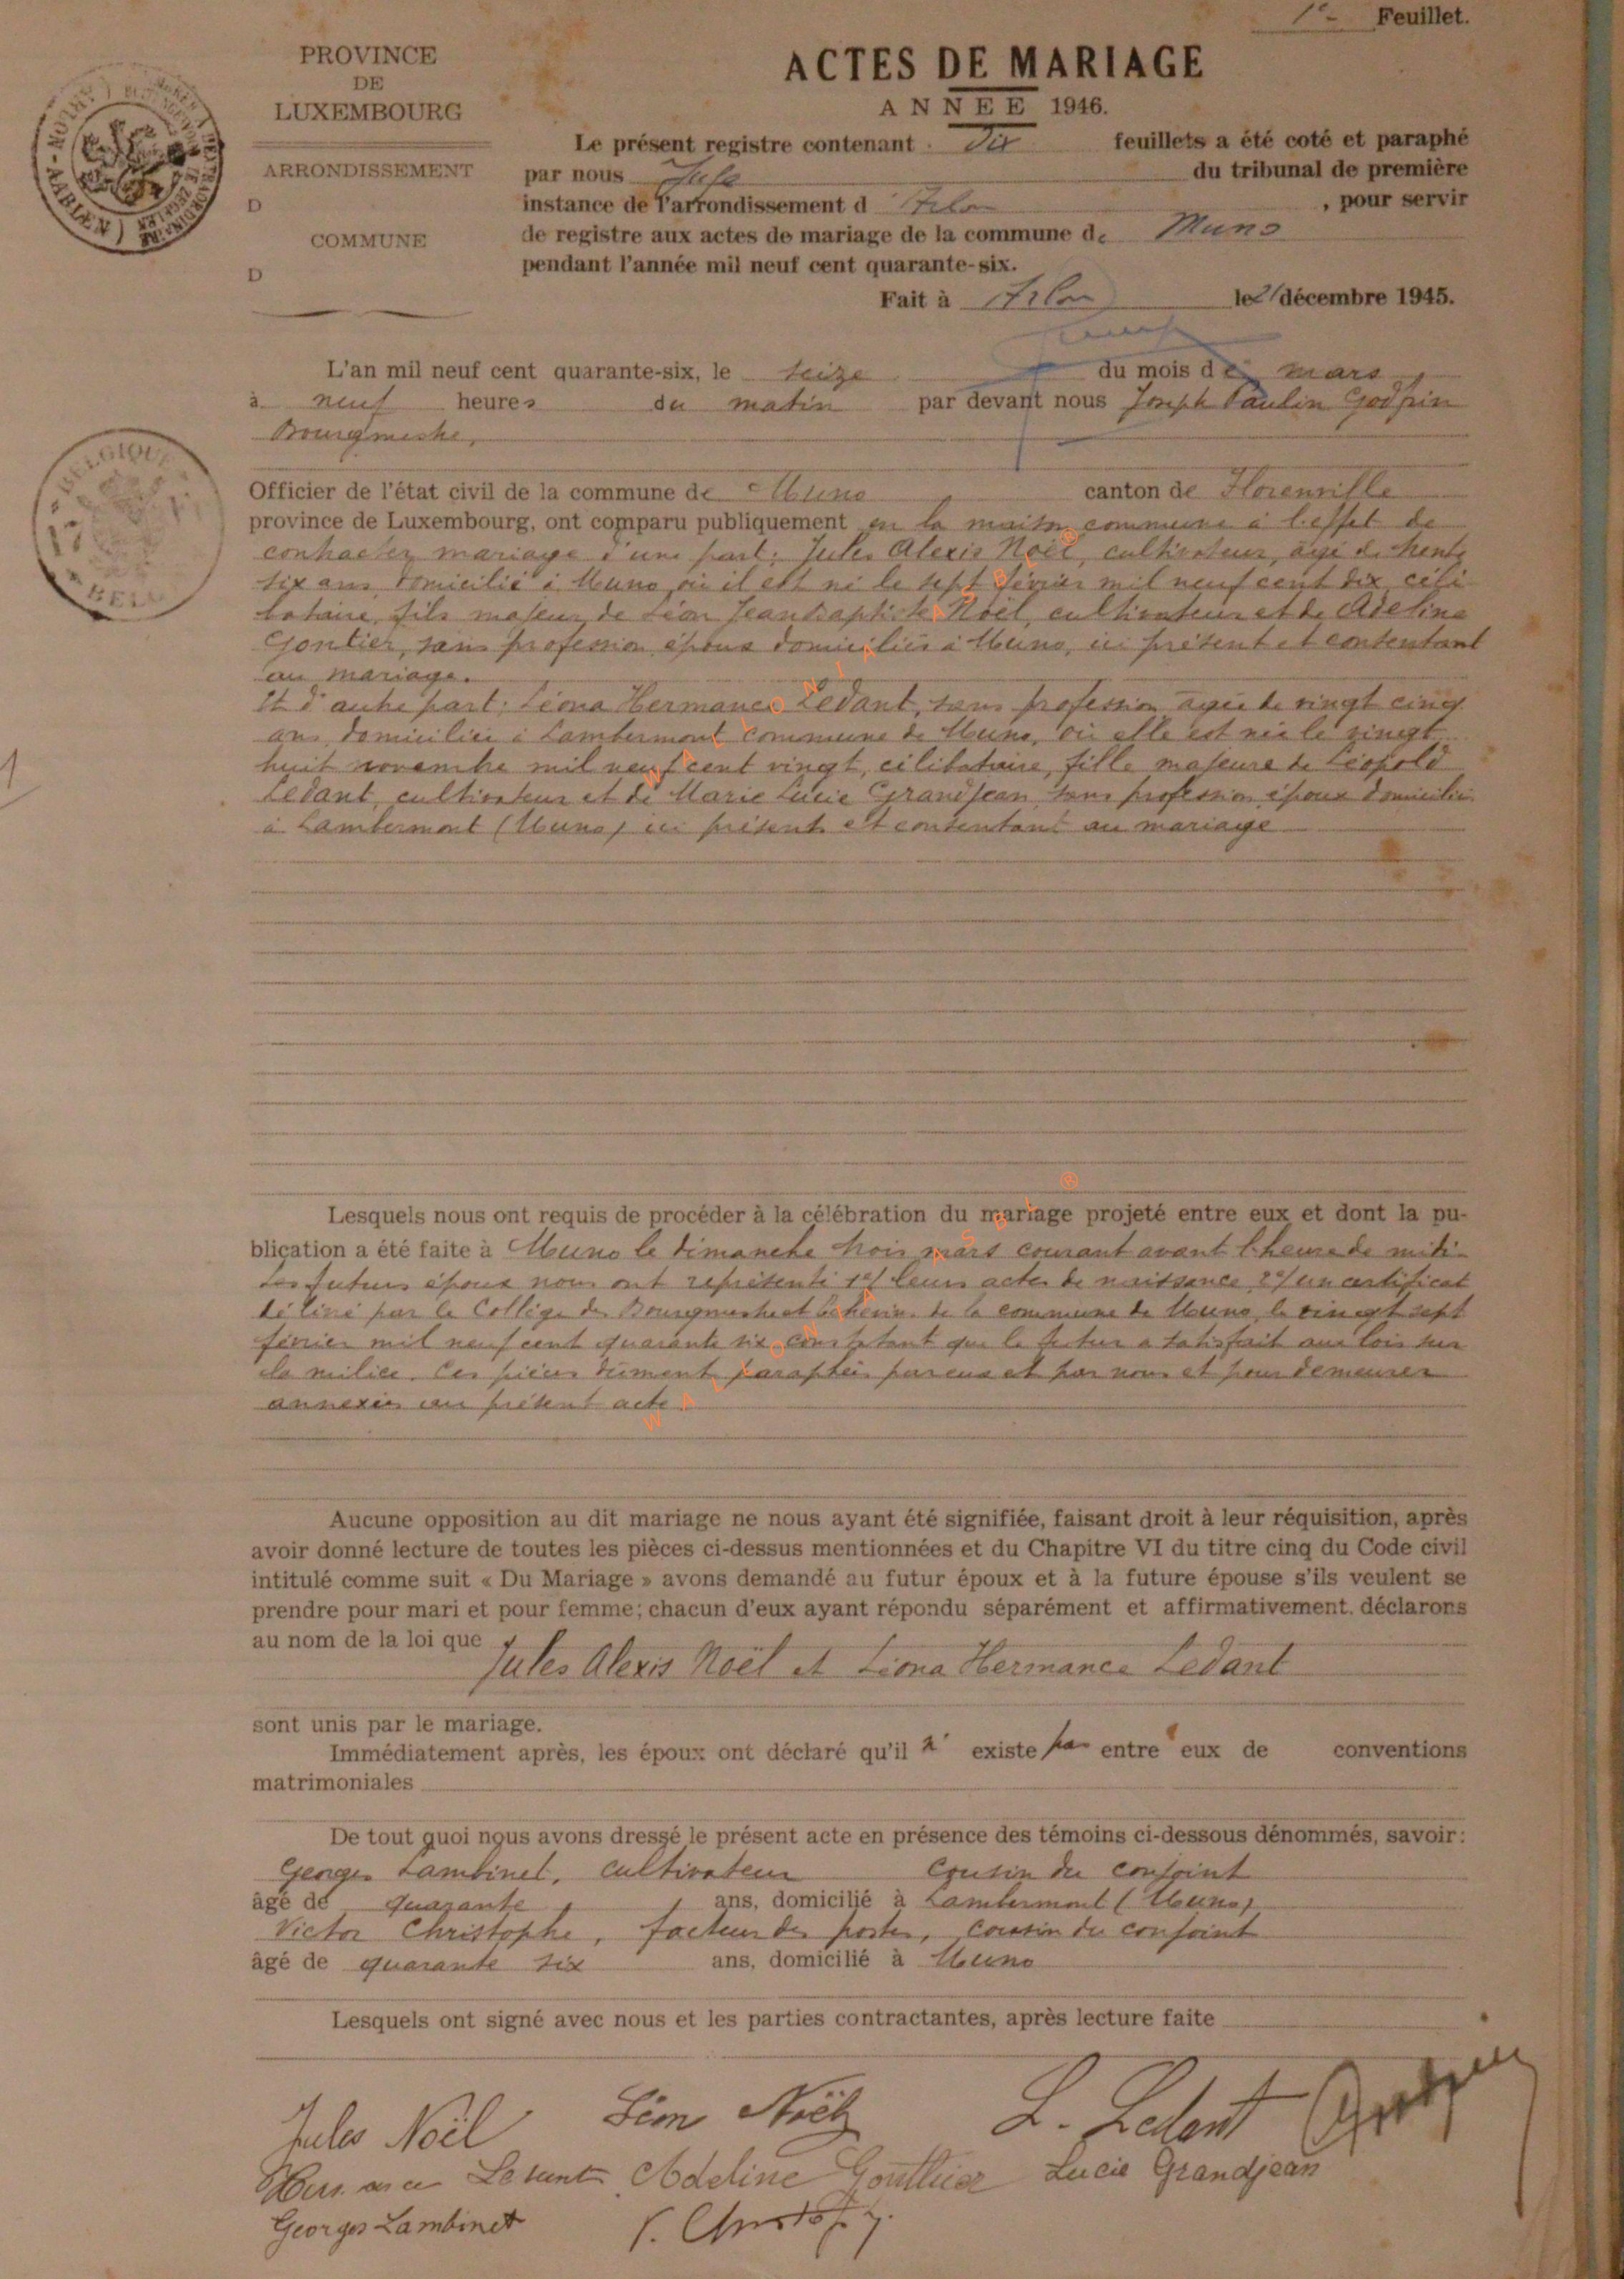 1e Feuillet.
PROVINCE
DE
LUXEMBOURG
ARRONDISSEMENT
D
COMMUNE
D
ACTES DE MARIAGE
ANNÉE 1946.
Le présent registre contenant Dix feuillets a été coté et paraphé
par nous Juge du tribunal de première
instance de l'arrondissement d Arlon , pour servir
de registre aux actes de mariage de la commune de Muno
pendant l'année mil neuf cent quarante-six.
Fait à Arlon le 21 décembre 1945.
L'an mil neuf cent quarante-six, le seize du mois de mars
à neuf heures du matin par devant nous Joseph Paulin Godfrin
Bourgmestre,
Officier de l'état civil de la commune de Muno canton de Florenville
province de Luxembourg, ont comparu publiquement en la maison commune à l'effet de
contracter mariage d'une part: Jules Alexis Noël, cultivateur, âgé de trente
six ans, domicilié à Muno, où il est né le sept février mil neuf cent dix, céli
bataire, fils majeur de Léon Jean Baptiste Noël, cultivateur et de Adeline
Gontier, sans profession, époux domiciliés à Muno, ici présent et consentant
au mariage.
Et d'autre part: Léona Hermance Ledant, sans profession âgée de vingt cinq
ans domiciliée à Lambermont commune de Muno, où elle est née le vingt
huit novembre mil neuf cent vingt, célibataire, fille majeure de Léopold
Ledant, cultivateur et de Marie Lucie Grandjean sans profession époux domiciliés
à Lambermont (Muno) ici présent et consentant au mariage
1
Lesquels nous ont requis de procéder à la célébration du mariage projeté entre eux et dont la pu-
blication a été faite à Muno le dimanche trois mars courant avant l'heure de midi
Les futurs époux nous ont représenté 1°/ leurs actes de naissance 2°/ un certificat
délivré par le Collège des Bourgmestre et Echevins de la commune de Muno, le vingt sept
février mil neuf cent quarante six constatant que le futur a satisfait aux lois sur
la milice. Ces pièces dûment paraphées par eux et par nous et pour demeurer
annexées au présent acte.
WALLONIA ASBL ®
Aucune opposition au dit mariage ne nous ayant été signifiée, faisant droit à leur réquisition, après
avoir donné lecture de toutes les pièces ci-dessus mentionnées et du Chapitre VI du titre cinq du Code civil
intitulé comme suit « Du Mariage » avons demandé au futur époux et à la future épouse s'ils veulent se
prendre pour mari et pour femme; chacun d'eux ayant répondu séparément et affirmativement. déclarons
au nom de la loi que
Jules Alexis Noël et Léona Hermance Ledant
sont unis par le mariage.
Immédiatement après, les époux ont déclaré qu'il n' existe pas entre eux de conventions
matrimoniales
De tout quoi nous avons dressé le présent acte en présence des témoins ci-dessous dénommés, savoir:
Georges Lambinet, cultivateur cousin du conjoint
âgé de quarante ans, domicilié à Lambermont (Muno)
Victor Christophe, facteur des postes, cousin du conjoint
âgé de quarante six ans, domicilié à Muno
Lesquels ont signé avec nous et les parties contractantes, après lecture faite
Jules Noël Léon Noël L. Ledant Godfrin
Hermance Ledant Adeline Gonthier Lucie Grandjean
Georges Lambinet V. Christophe